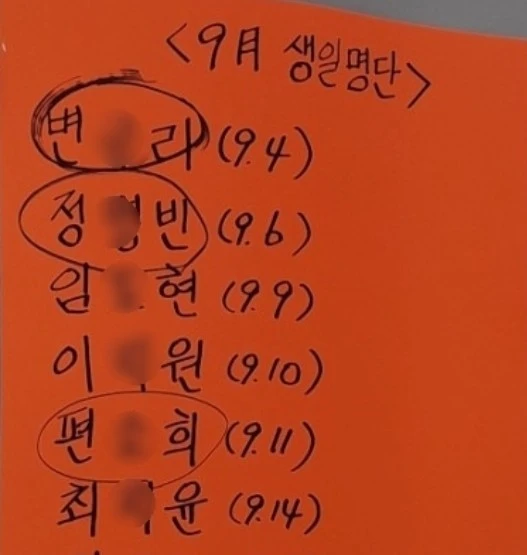 <9月 생일명단>
변 리 (9.4)
정 빈 (9.6)
임 현 (9.9)
이 원 (9.10)
편 희 (9.11)
최 윤 (9.14)